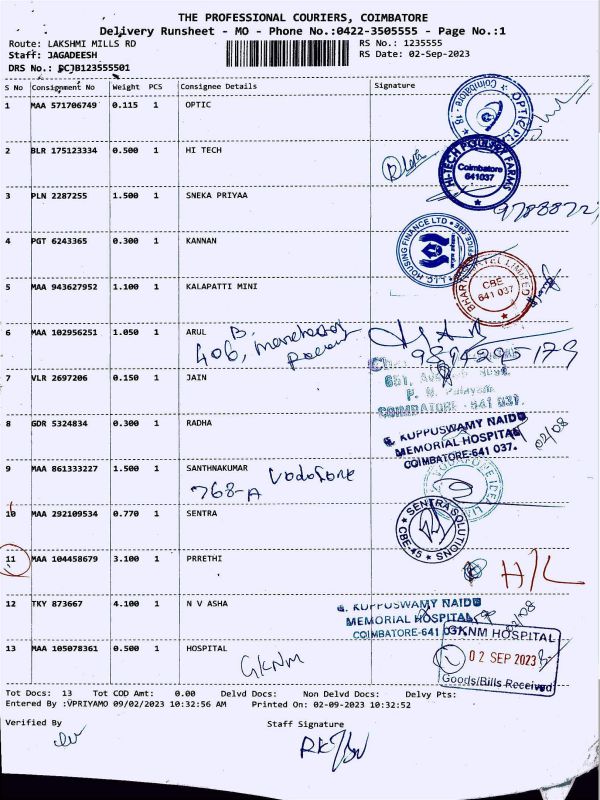 THE PROFESSIONAL COURIERS, COIMBATORE
Delivery Runsheet - MO - Phone No.:0422-3505555 - Page No.:1
Route: LAKSHMI MILLS RD RS No.: 1235555
Staff: JAGADEESH RS Date: 02-Sep-2023
DRS No.: PCJB1235555501
S No Consignment No Weight PCS Consignee Details Signature
1 MAA 571706749 0.115 1 OPTIC
Coimbatore
2 BLR 175123334 0.500 1 HI TECH
HI-TECH POULTRY FARMS
Coimbatore
641037
3 PLN 2287255 1.500 1 SNEKA PRIYAA
4 PGT 6243365 0.300 1 KANNAN
HOUSING FINANCE LTD
5 MAA 943627952 1.100 1 KALAPATTI MINI
LIMITED
CBE
641 037
6 MAA 102956251 1.050 1 ARUL
B.
406,
7 VLR 2697206 0.150 1 JAIN
COIMBATORE - 641 037.
8 GDR 5324834 0.300 1 RADHA
G. KUPPUSWAMY NAIDU
MEMORIAL HOSPITAL
COIMBATORE-641 037.
02/08
9 MAA 861333227 1.500 1 SANTHNAKUMAR
Vodafone
768-A
VODAFONE IDEA
10 MAA 292109534 0.770 1 SENTRA
SENTRA SOLUTIONS
CBE-45
11 MAA 104458679 3.100 1 PRRETHI
H/L
12 TKY 873667 4.100 1 N V ASHA
G. KUPPUSWAMY NAIDU
MEMORIAL HOSPITAL
COIMBATORE-641 037.
02/08
13 MAA 105078361 0.500 1 HOSPITAL
GKNM
GKNM HOSPITAL
02 SEP 2023
Goods/Bills Received
Tot Docs: 13 Tot COD Amt: 0.00 Delvd Docs: Non Delvd Docs: Delvy Pts:
Entered By :VPRIYAMO 09/02/2023 10:32:56 AM Printed On: 02-09-2023 10:32:52
Verified By Staff Signature